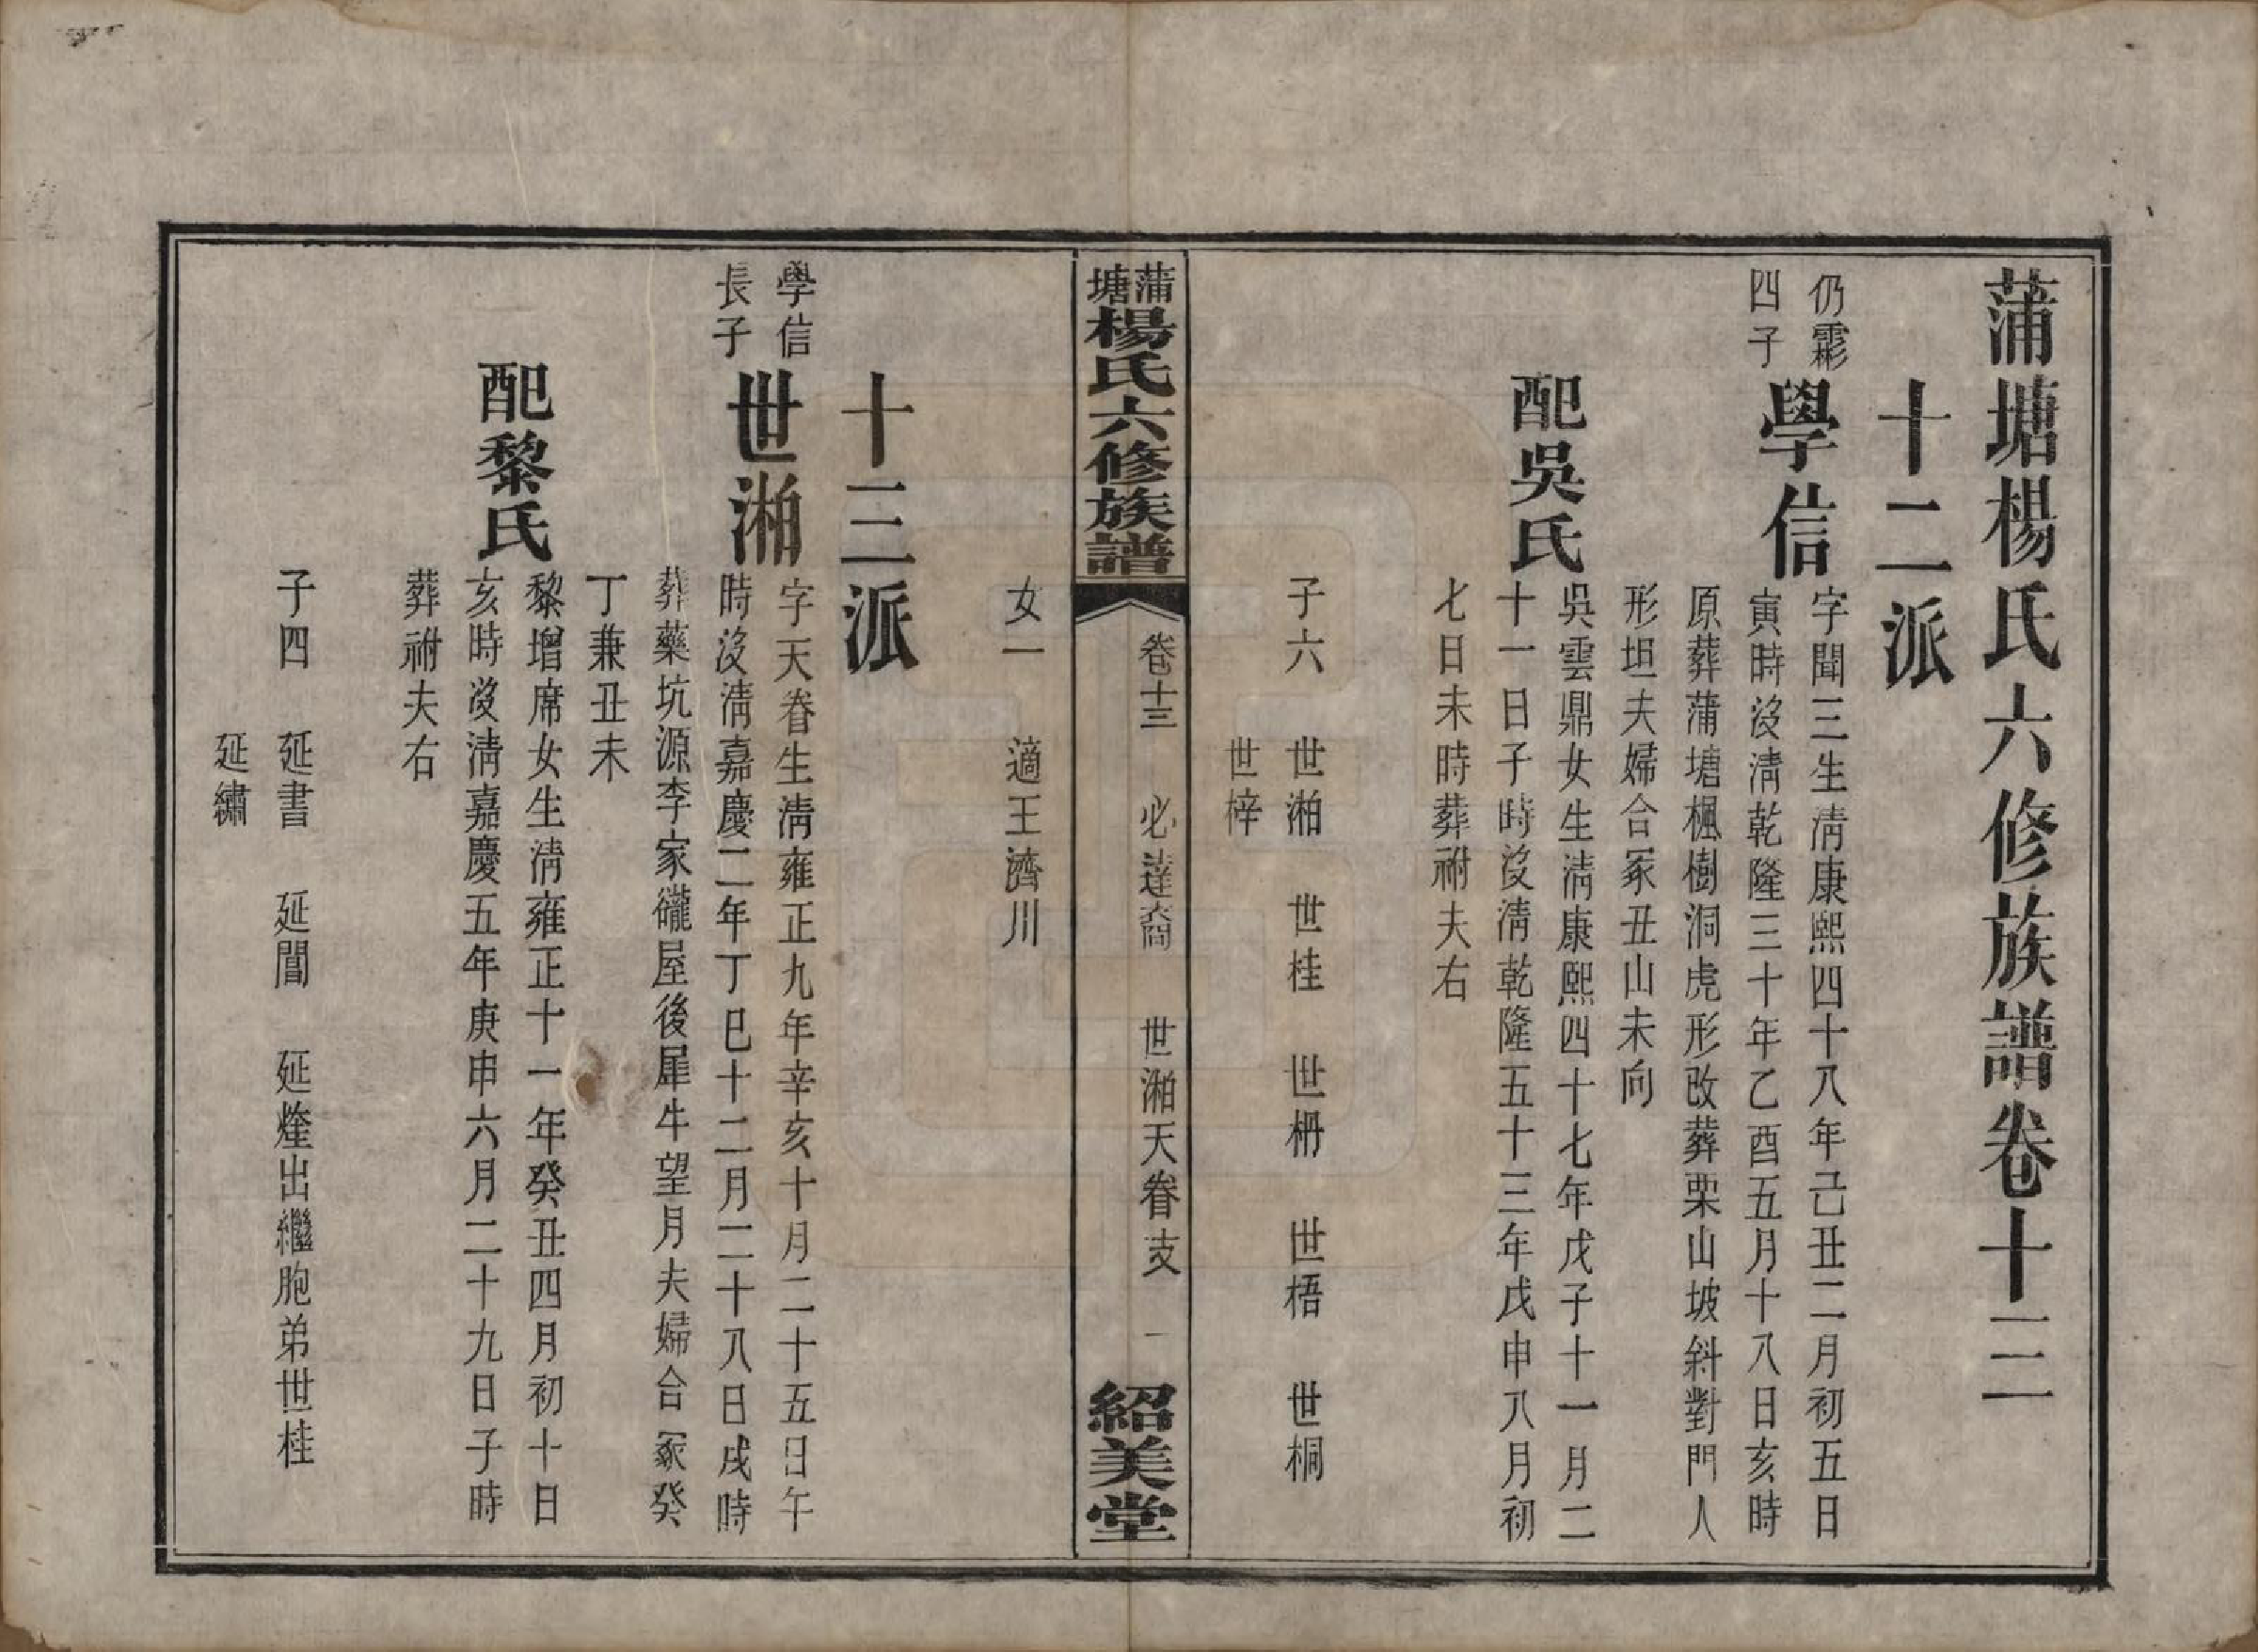 蒲塘楊氏六修族譜卷十三
十二派
仍霦
四子
學信
字聞三生淸康熙四十八年己丑二月初五日
寅時沒淸乾隆三十年乙酉五月十八日亥時
原葬蒲塘楓樹洞虎形改葬栗山坡斜對門人
形坦夫婦合冢丑山未向
配吳氏
吳雲鼎女生淸康熙四十七年戊子十一月二
十一日子時沒淸乾隆五十三年戊申八月初
七日未時葬祔夫右
子六 世湘 世桂 世栅 世梧 世桐
世梓
蒲塘楊氏六修族譜
卷十三 必達裔 世湘天眷支 一
紹美堂
女一 適王濟川
十三派
學信
長子
世湘
字天眷生淸雍正九年辛亥十月二十五日午
時沒淸嘉慶二年丁巳十二月二十八日戌時
葬藥坑源李家礲屋後犀牛望月夫婦合冢癸
丁兼丑未
配黎氏
黎增席女生淸雍正十一年癸丑四月初十日
亥時沒淸嘉慶五年庚申六月二十九日子時
葬祔夫右
子四 延書 延誾 延烇出繼胞弟世桂
延繡